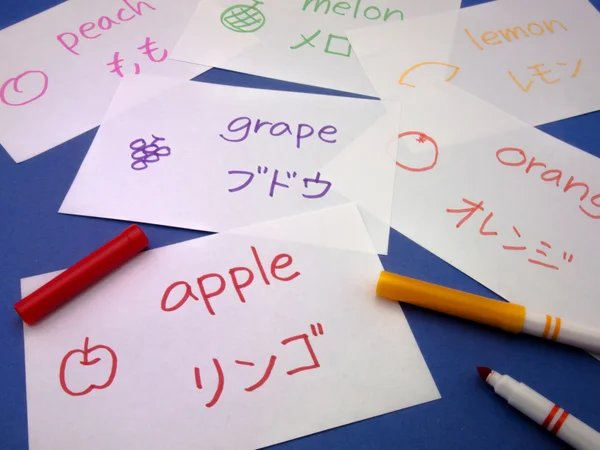 peach
もも
melon
メロ
lemon
レモン
grape
ブドウ
orang
オレンジ
apple
リンゴ